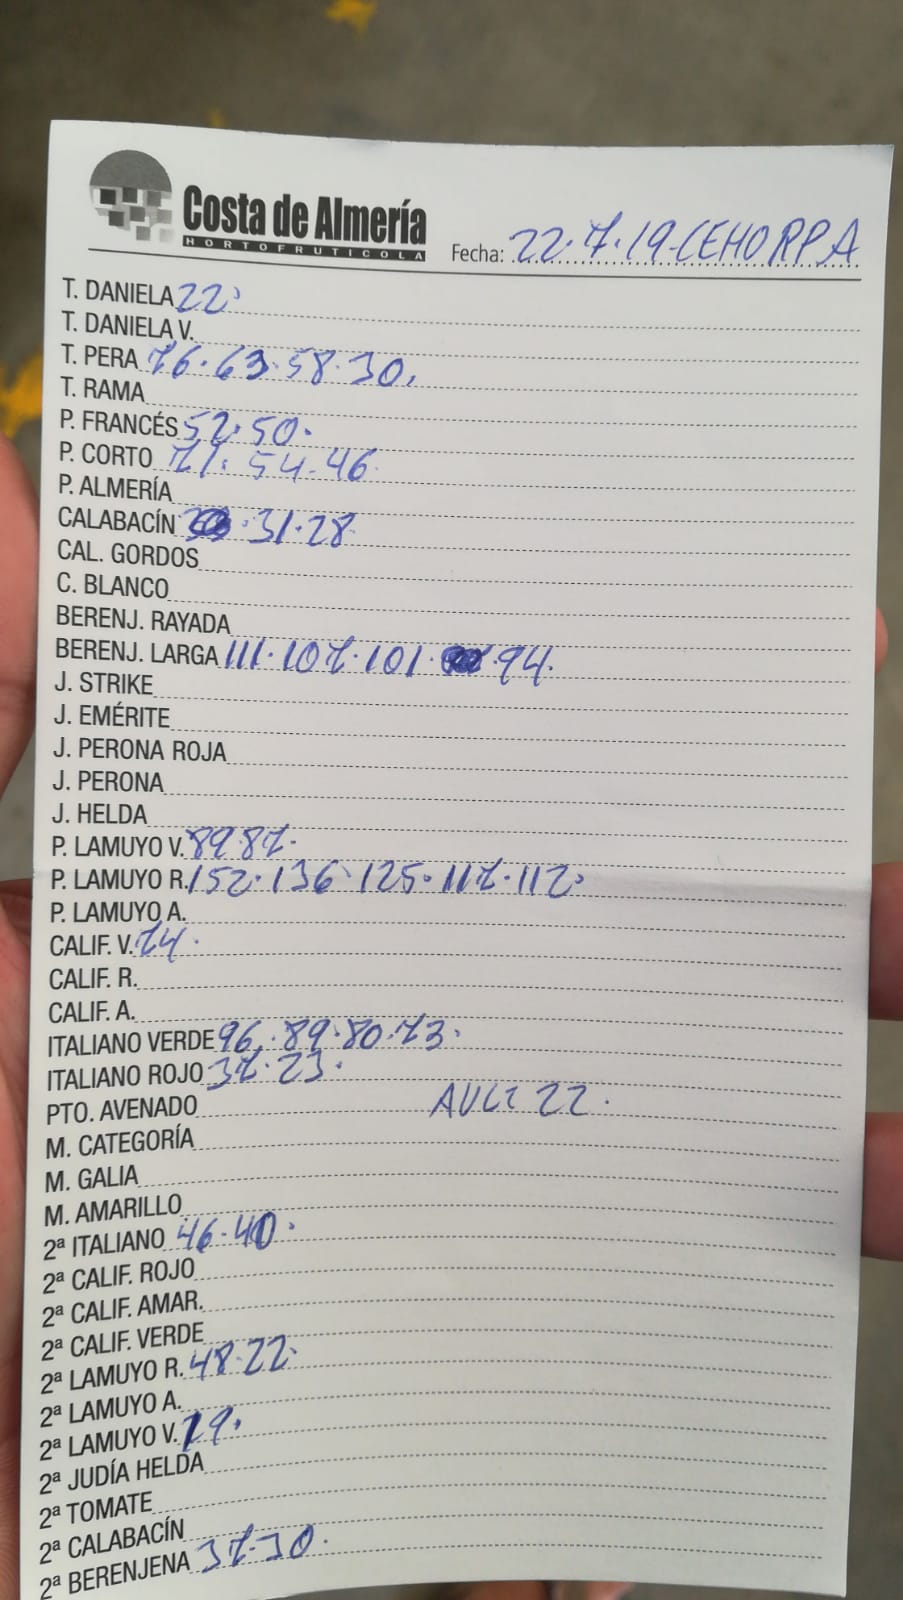 Costa de Almería
HORTOFRUTICOLA
Fecha: 22.7.19-CEHORPA
T. DANIELA 22.
T. DANIELA V.
T. PERA 76.63.58.30.
T. RAMA
P. FRANCÉS 52.50.
P. CORTO 71.54-46.
P. ALMERÍA
CALABACÍN .31.28
CAL. GORDOS
C. BLANCO
BERENJ. RAYADA
BERENJ. LARGA 111.107.101. .94.
J. STRIKE
J. EMÉRITE
J. PERONA ROJA
J. PERONA
J. HELDA
P. LAMUYO V. 89.87.
P. LAMUYO R. 152.136.125.117.112.
P. LAMUYO A.
CALIF. V. 74.
CALIF. R.
CALIF. A.
ITALIANO VERDE 96.89.80.73.
ITALIANO ROJO 37.23.
PTO. AVENADO 22.
M. CATEGORÍA
M. GALIA
M. AMARILLO
2ª ITALIANO 46.40.
2ª CALIF. ROJO
2ª CALIF. AMAR.
2ª CALIF. VERDE
2ª LAMUYO R. 48.22.
2ª LAMUYO A.
2ª LAMUYO V. 29.
2ª JUDÍA HELDA
2ª TOMATE
2ª CALABACÍN
2ª BERENJENA 37.30.